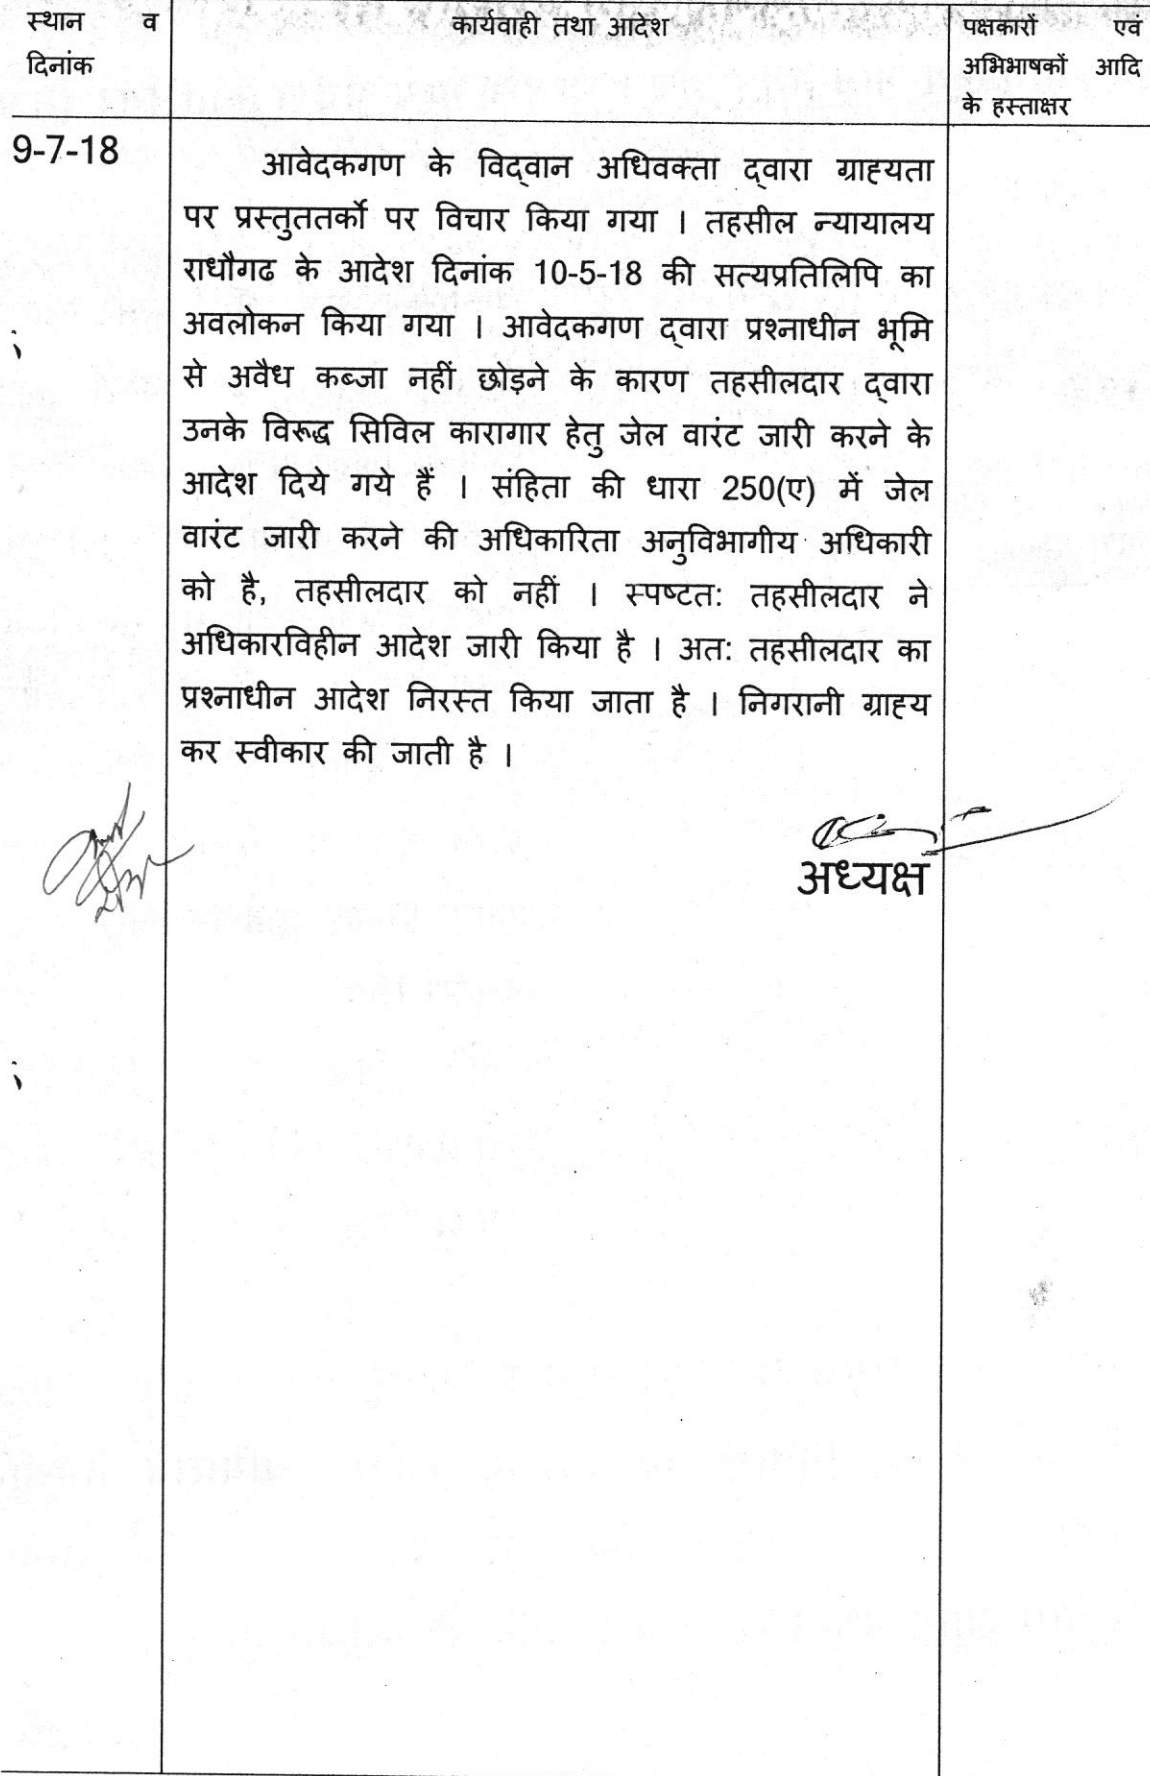 स्थान व
दिनांक
कार्यवाही तथा आदेश
पक्षकारों एवं
अभिभाषकों आदि
के हस्ताक्षर
9-7-18
आवेदकगण के विद्वान अधिवक्ता द्वारा ग्राह्यता
पर प्रस्तुततर्को पर विचार किया गया । तहसील न्यायालय
राधौगढ के आदेश दिनांक 10-5-18 की सत्यप्रतिलिपि का
अवलोकन किया गया । आवेदकगण द्वारा प्रश्नाधीन भूमि
से अवैध कब्जा नहीं छोड़ने के कारण तहसीलदार द्वारा
उनके विरूद्ध सिविल कारागार हेतु जेल वारंट जारी करने के
आदेश दिये गये हैं । संहिता की धारा 250(ए) में जेल
वारंट जारी करने की अधिकारिता अनुविभागीय अधिकारी
को है, तहसीलदार को नहीं । स्पष्टत: तहसीलदार ने
अधिकारविहीन आदेश जारी किया है । अत: तहसीलदार का
प्रश्नाधीन आदेश निरस्त किया जाता है । निगरानी ग्राह्य
कर स्वीकार की जाती है ।
अध्यक्ष